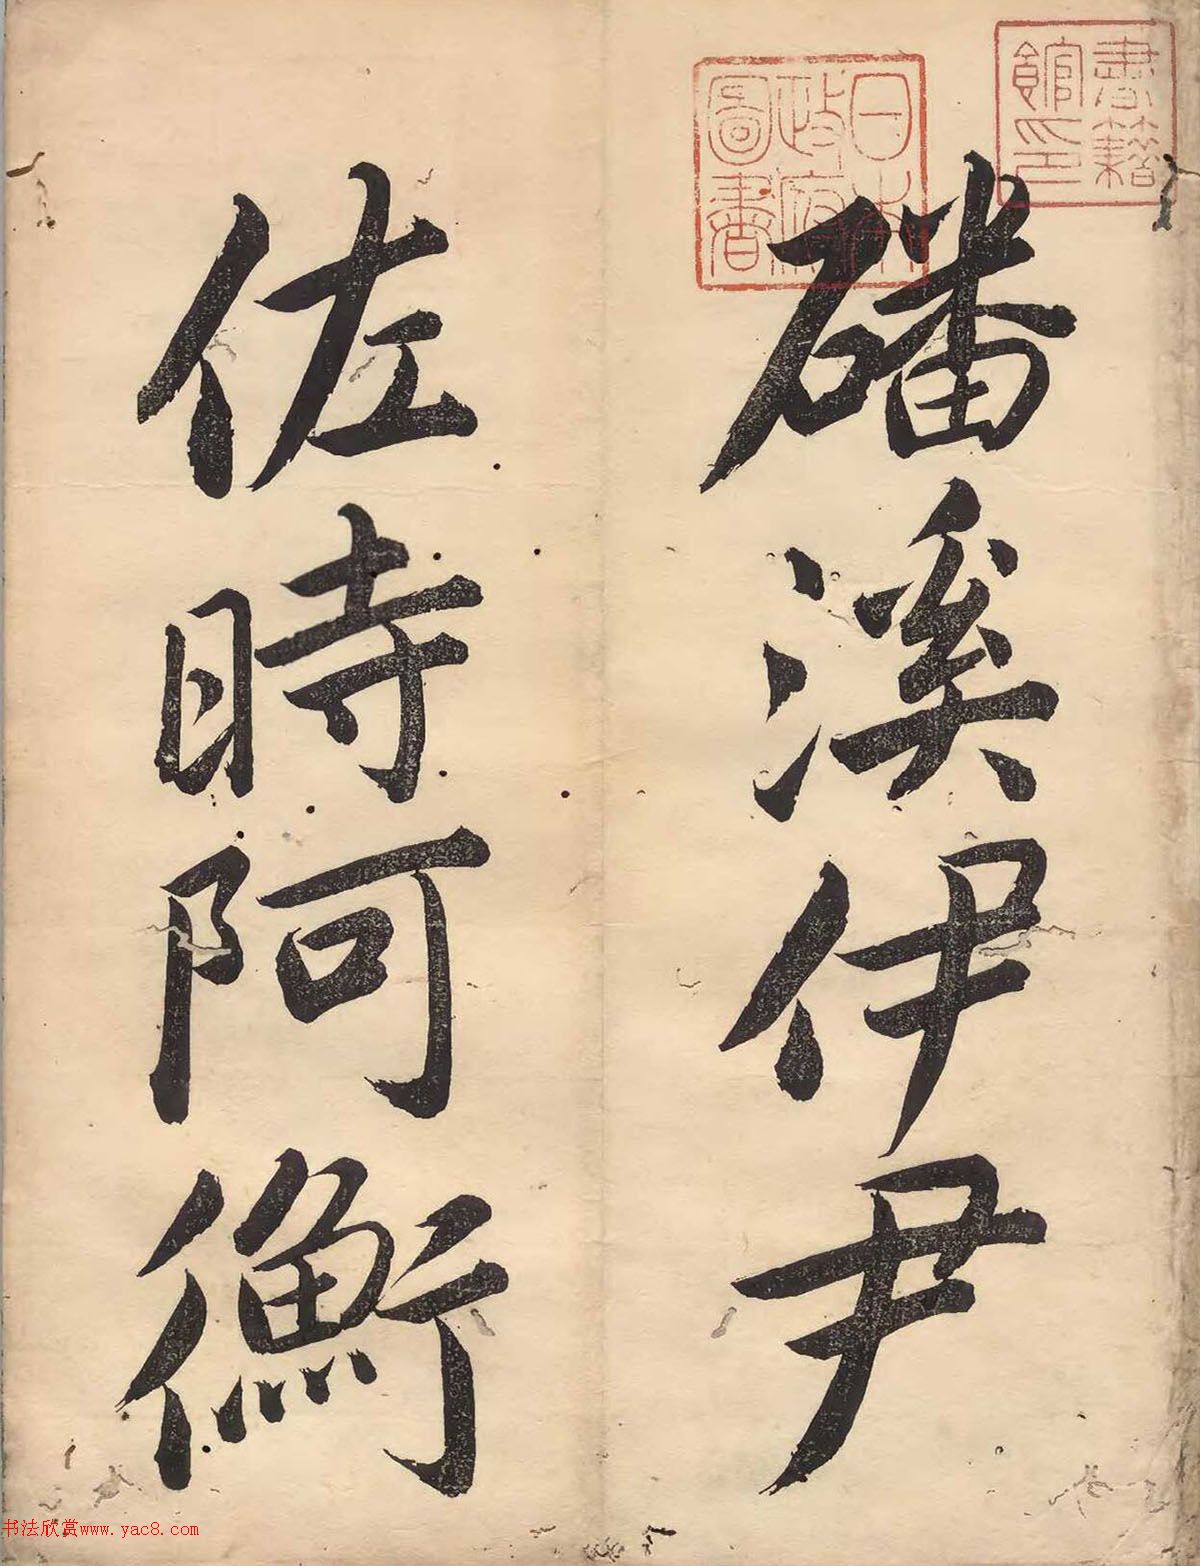 磻溪伊尹
佐時阿衡
書籍館印
日本政府圖書
书法欣赏www.yac8.com